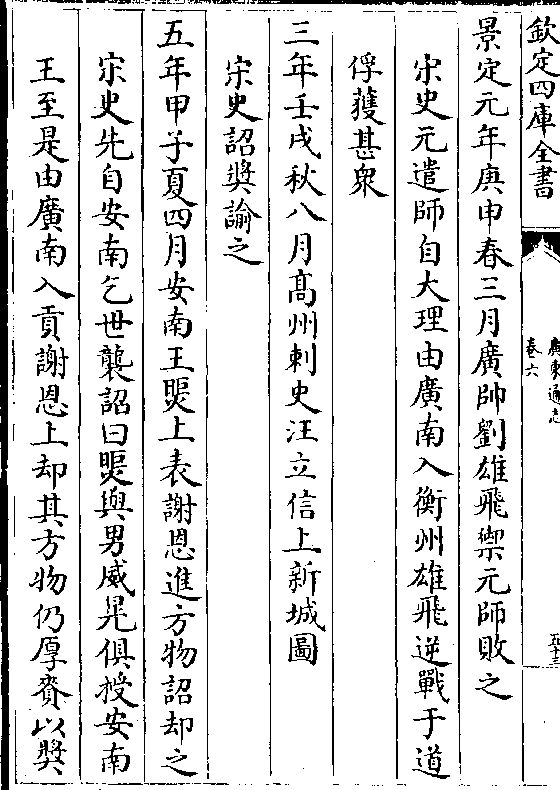 欽定四庫全書
廣東通志
卷六
五十三
景定元年庚申春三月廣帥劉雄飛禦元師敗之
宋史元遣師自大理由廣南入衡州雄飛逆戰于道
俘䕶甚衆
三年壬戌秋八月髙州刺史汪立信上新城圖
宋史詔奬諭之
五年甲子夏四月安南王煚上表謝恩進方物詔却之
宋史先自安南乞世襲詔曰煚與男威晃俱授安南
王至是由廣南入貢謝恩上却其方物仍厚賚以奬